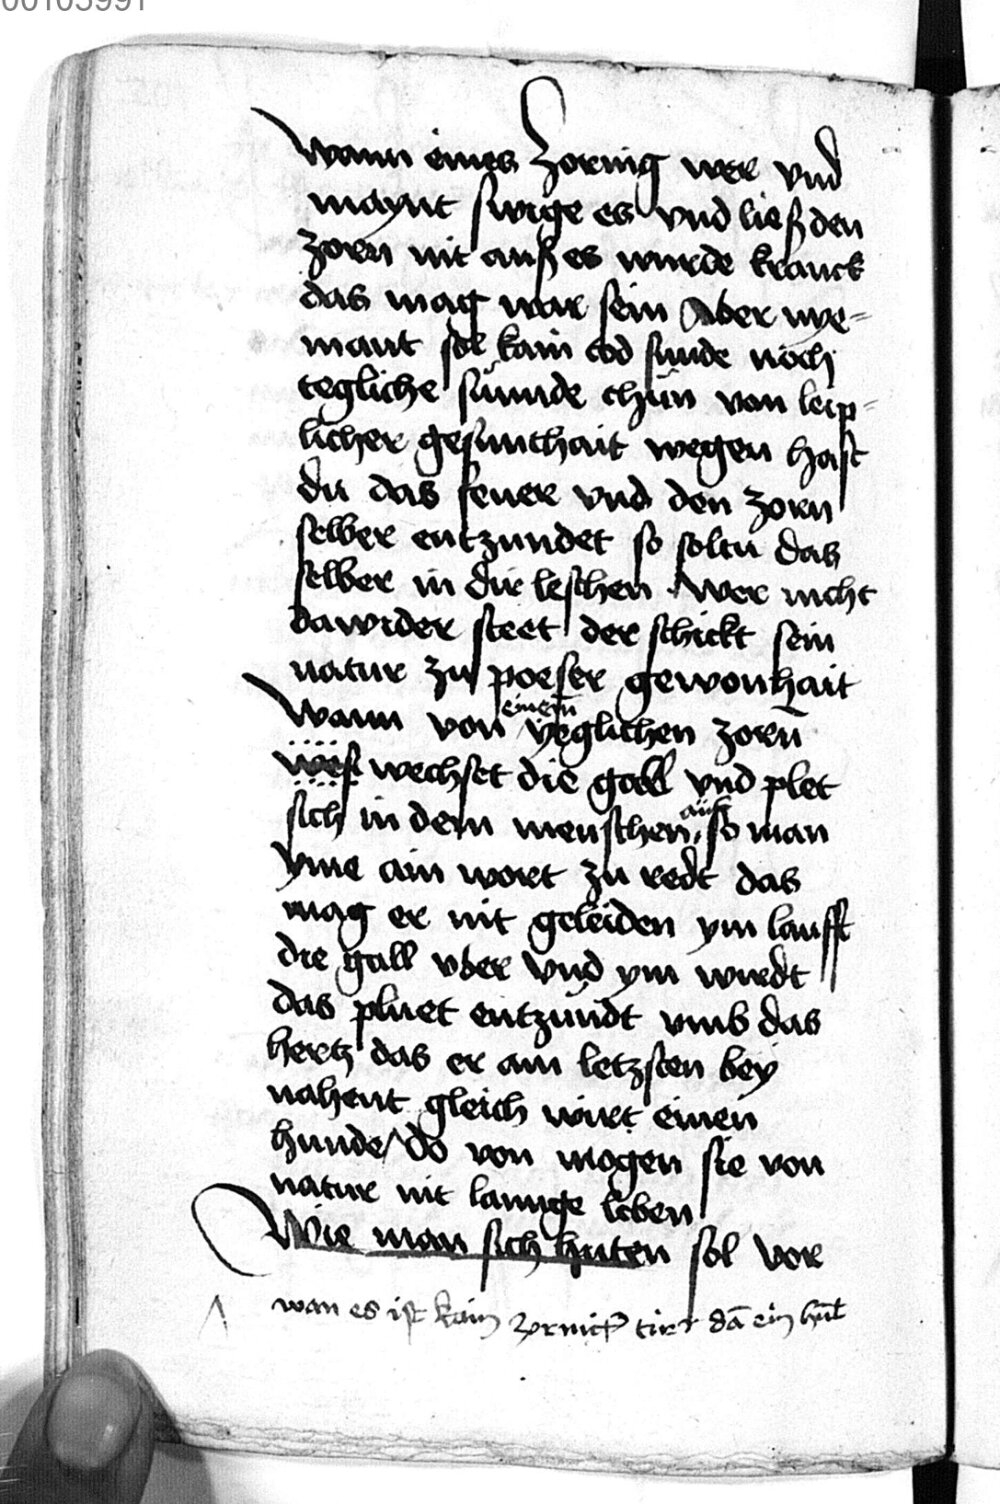 00103991
Wann eines zornig wer vnd
maynt swige es vnd ließ den
zorn nit auß es wurde kranck
das mag war sein Aber nye=
mant sol kain tod sunde noch
tegliche sůnnde thůn von leip=
licher gesunthait wegen hast
du das feuer vnd den zorn
selber entzundet so soltu das
selber in dir leschen Wer nicht
dawider steet der schickt sein
natur zu poeser gewonhait
Wann von einem yeglichen zorn̄
wechset die gall vnd plet
sich in dem menschen auff so man
yme ain wort zu redt das
mag er nit geleiden ym laufft
die gall vber vnd ym wirdt
das pluet entzundt vmb das
hertz das er am letzsten bey
nahent gleich wirt einen
hunde / do von mogen sie von
natur nit lannge leben
Wie man sich huten sol vor
wan es ist kain tier dā ein